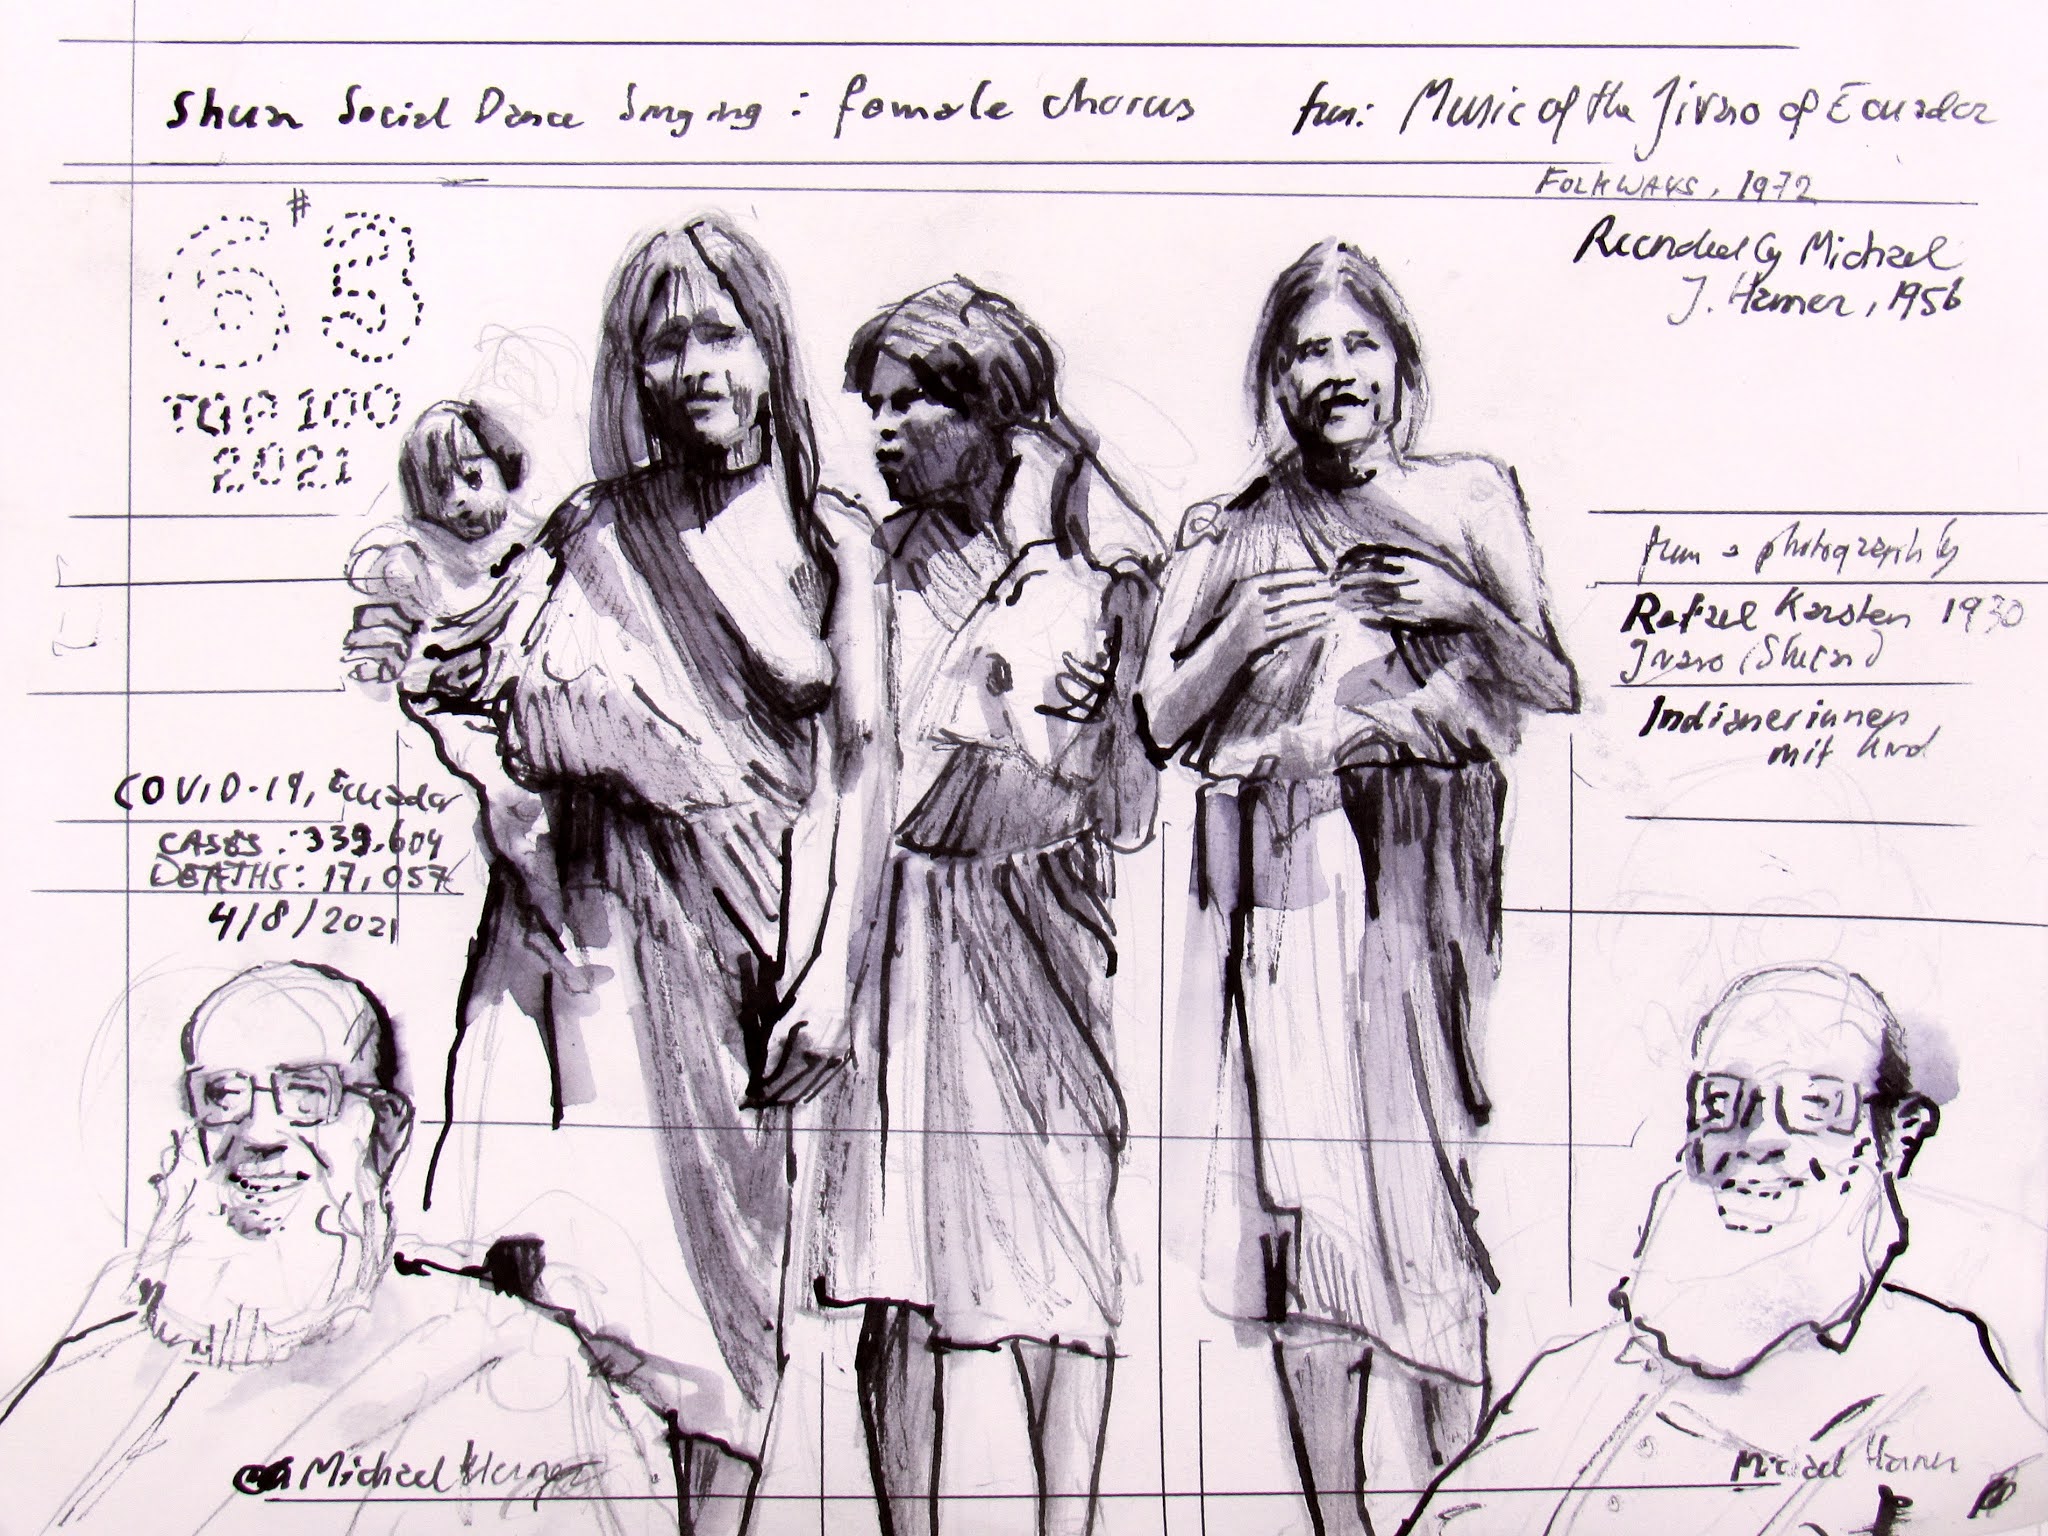 Shuar Social Dance Singing : female chorus
from: Music of the Jivaro of Ecuador
FOLKWAYS, 1972
Recorded by Michael
J. Harner, 1956
#
63
TOP 100
2021
from a photograph by
Rafael Karsten 1930
Jivaro (Shuar)
Indianerinnen
mit Kind
COVID-19, Ecuador
CASES : 339,604
DEATHS: 17,057
4/8/2021
Michael Harner
Michael Harner